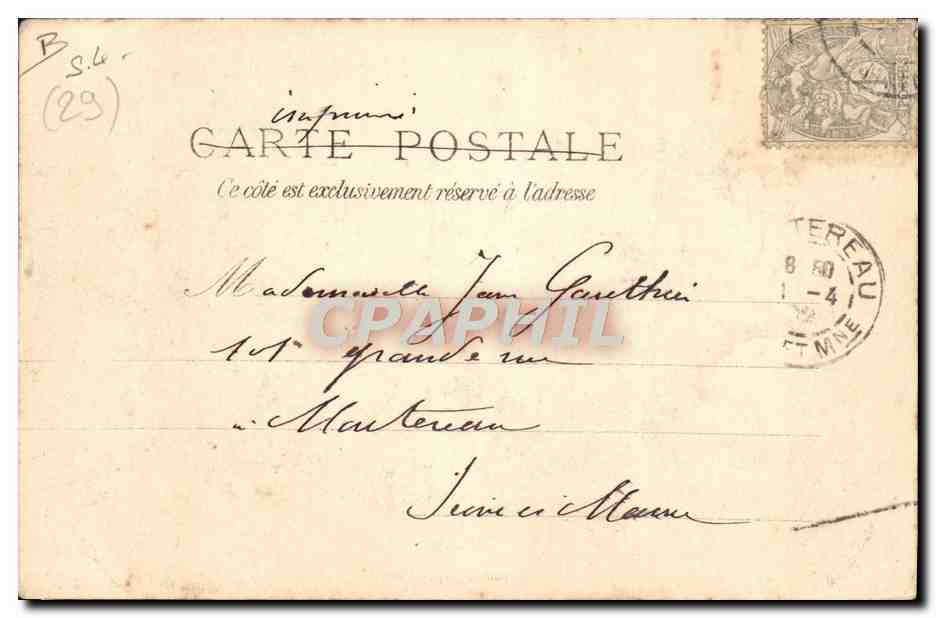 B
S.L.
(29)
imprimé
CARTE POSTALE
Ce côté est exclusivement réservé à l'adresse
TEREAU
8 30
1 -4
ET MNE
Mademoiselle Jane Gauthier
CPAPHIL
101 grande rue
à Montereau
Seine et Marne